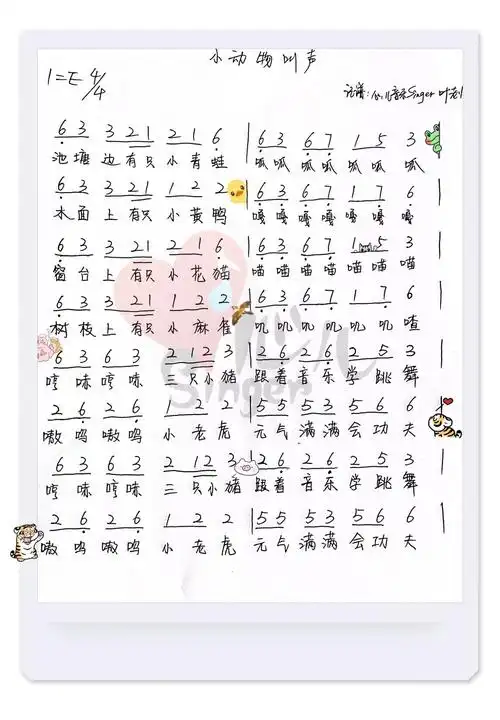 小动物叫声
1=E 4/4
记谱:心儿音乐Singer
6 3 3 21 2 1 6 | 6 3 6 7 1 5 3 |
池塘边有只小青蛙 呱呱呱呱呱呱呱
6 3 3 21 1 2 2 | 6 3 6 7 1 7 6 |
水面上有只小黄鸭 嘎嘎嘎嘎嘎嘎嘎
6 3 3 21 2 1 6 | 6 3 6 7 1 5 3 |
窗台上有只小花猫 喵喵喵喵喵喵喵
6 3 3 21 1 2 2 | 6 3 6 7 1 7 6 |
树枝上有只小麻雀 叽叽叽叽叽叽喳
6 3 6 3 2 12 3 | 2 6 2 6 2 5 3 |
哼哧哼哧三只小猪 跟着音乐学跳舞
2 6 2 6 1 2 2 | 5 5 5 3 5 6 6 |
嗷呜嗷呜小老虎 元气满满会功夫
6 3 6 3 2 12 3 | 2 6 2 6 2 5 3 |
哼哧哼哧三只小猪 跟着音乐学跳舞
2 6 2 6 1 2 2 | 5 5 5 3 5 6 6 |
嗷呜嗷呜小老虎 元气满满会功夫
心儿
Singer